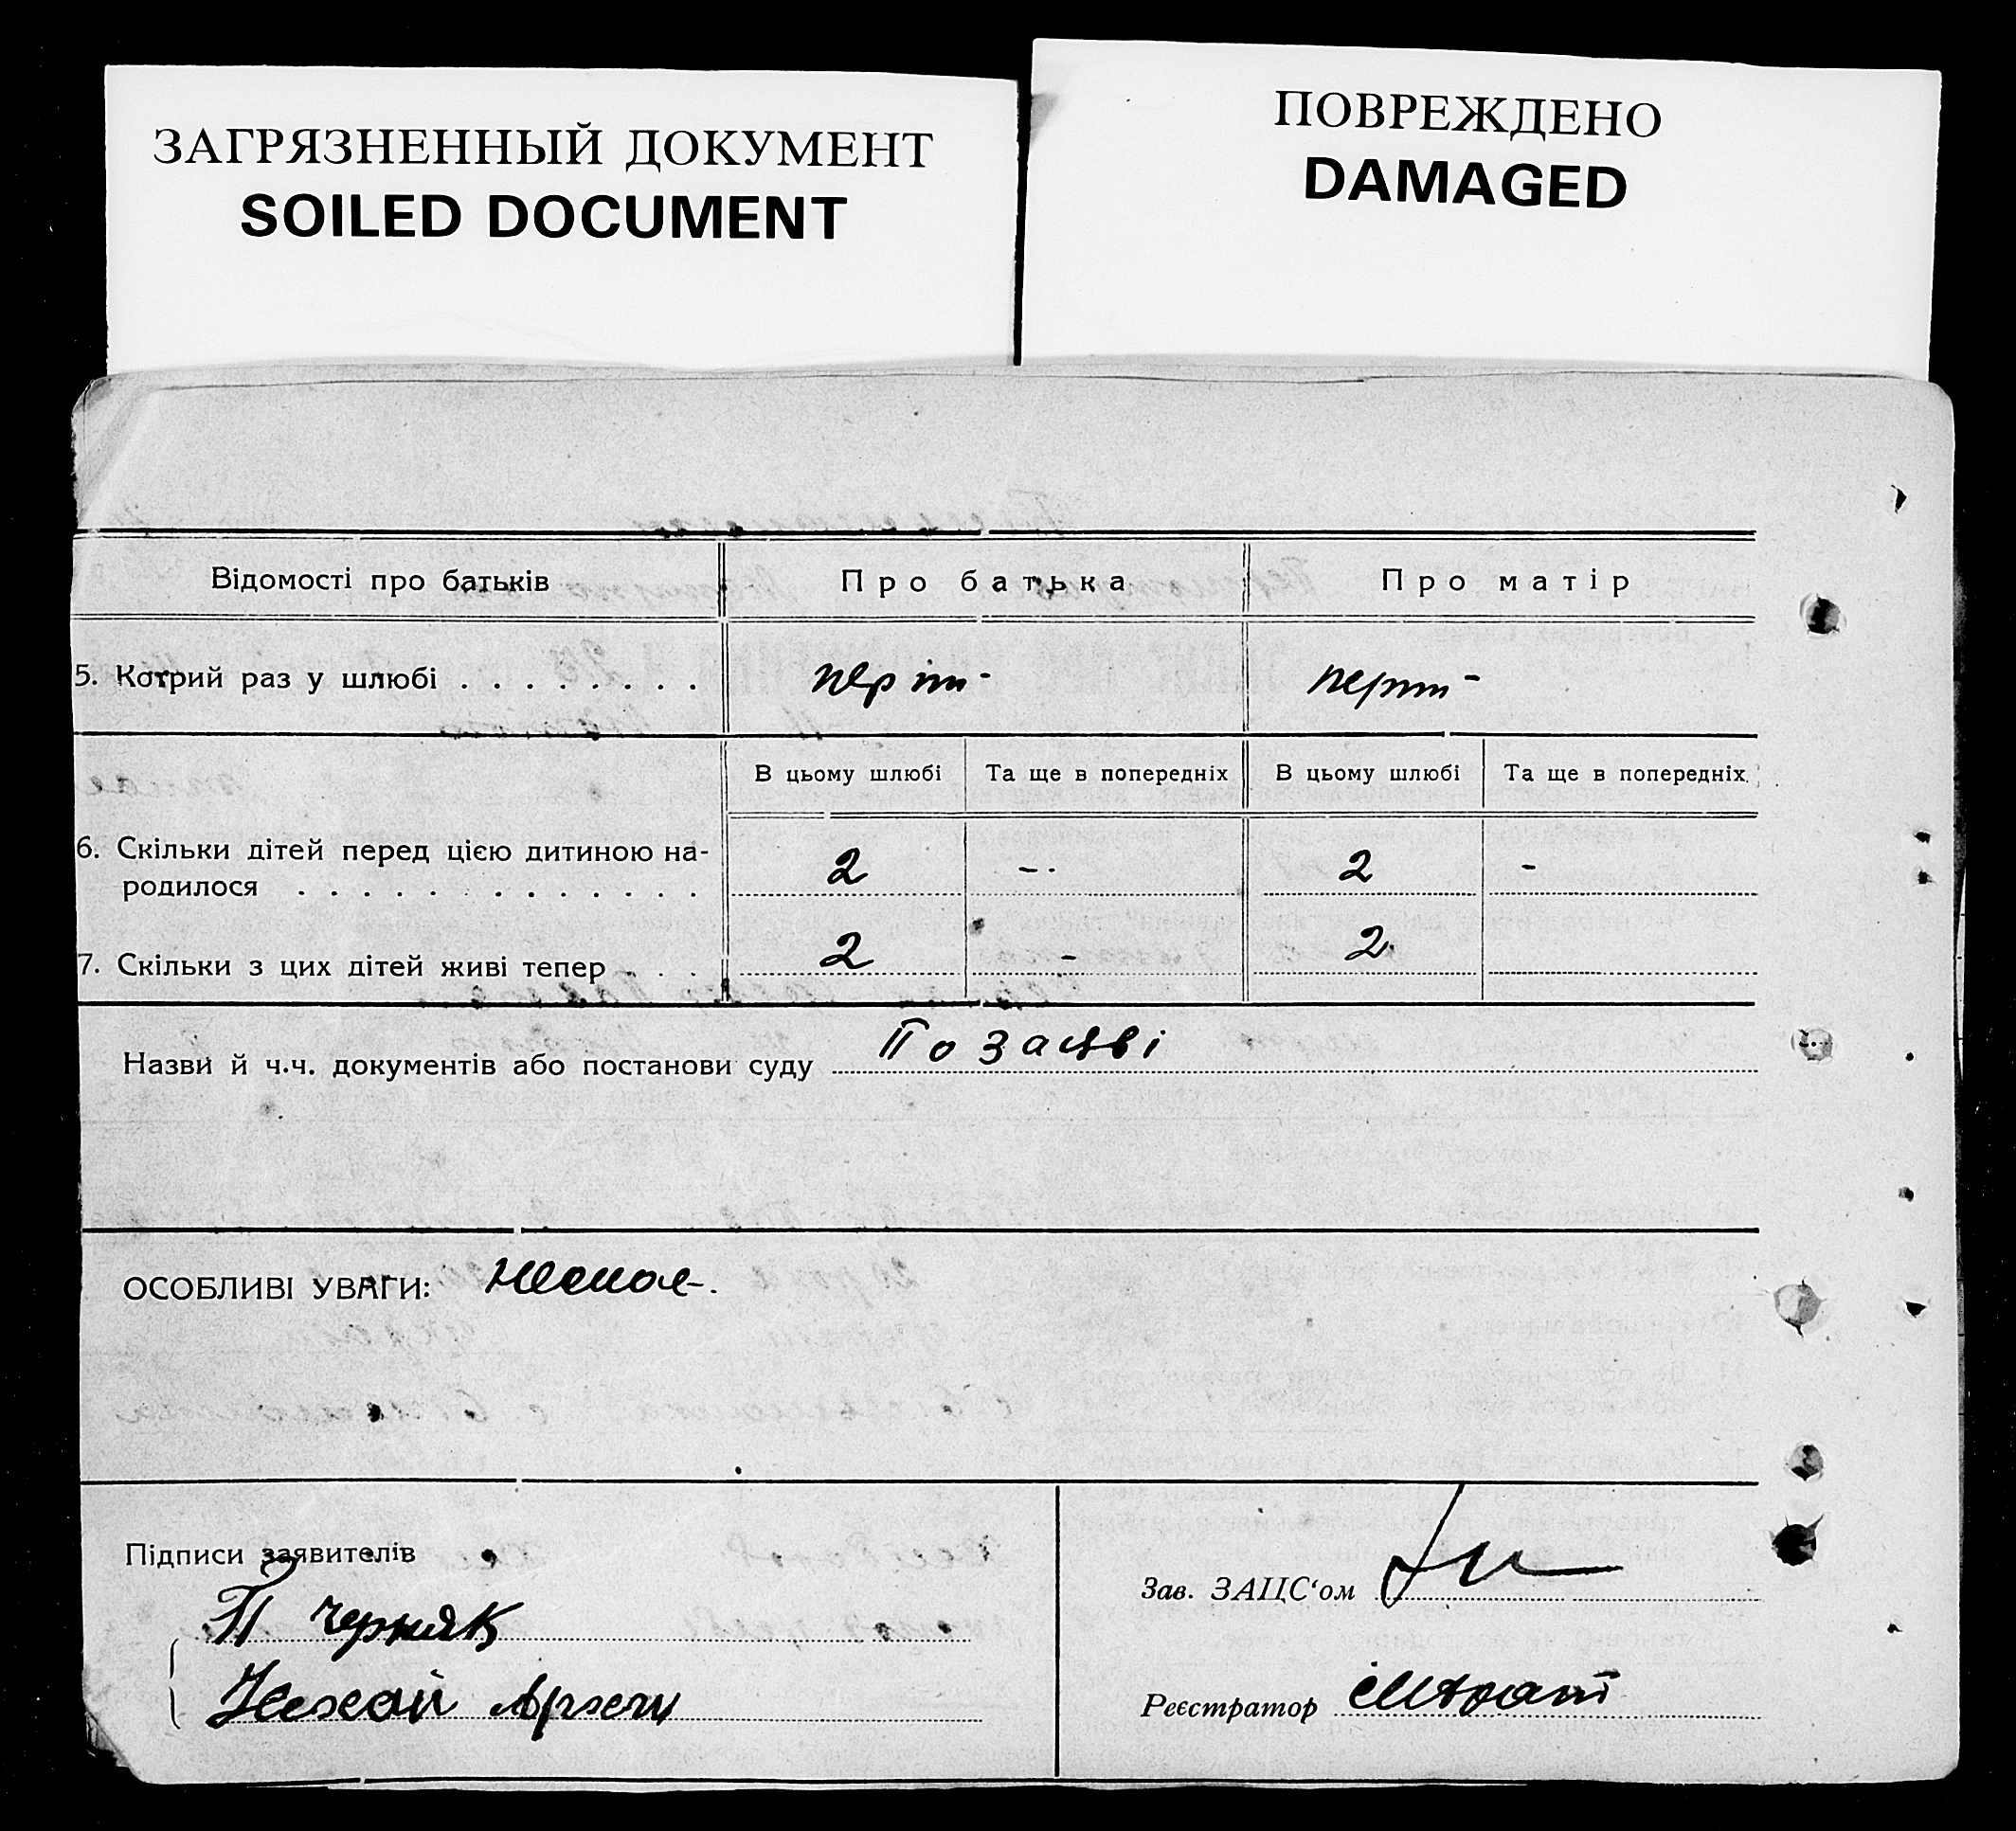 ЗАГРЯЗНЕННЫЙ ДОКУМЕНТ
SOILED DOCUMENT
ПОВРЕЖДЕНО
DAMAGED
Відомості про батьків Про батька Про матір
5. Котрий раз у шлюбі . . . . . . . .
В цьому шлюбі Та ще в попередніх В цьому шлюбі Та ще в попередніх
6. Скільки дітей перед цією дитиною на-
родилося . . . . . . . . . . . . . 2 - 2 -
7. Скільки з цих дітей живі тепер . . . 2 - 2
Назви й ч.ч. документів або постанови суду По заяві
ОСОБЛИВІ УВАГИ: немає.
Підписи заявителів
П Черняк
Зав. ЗАЦС‘ом
Реєстратор